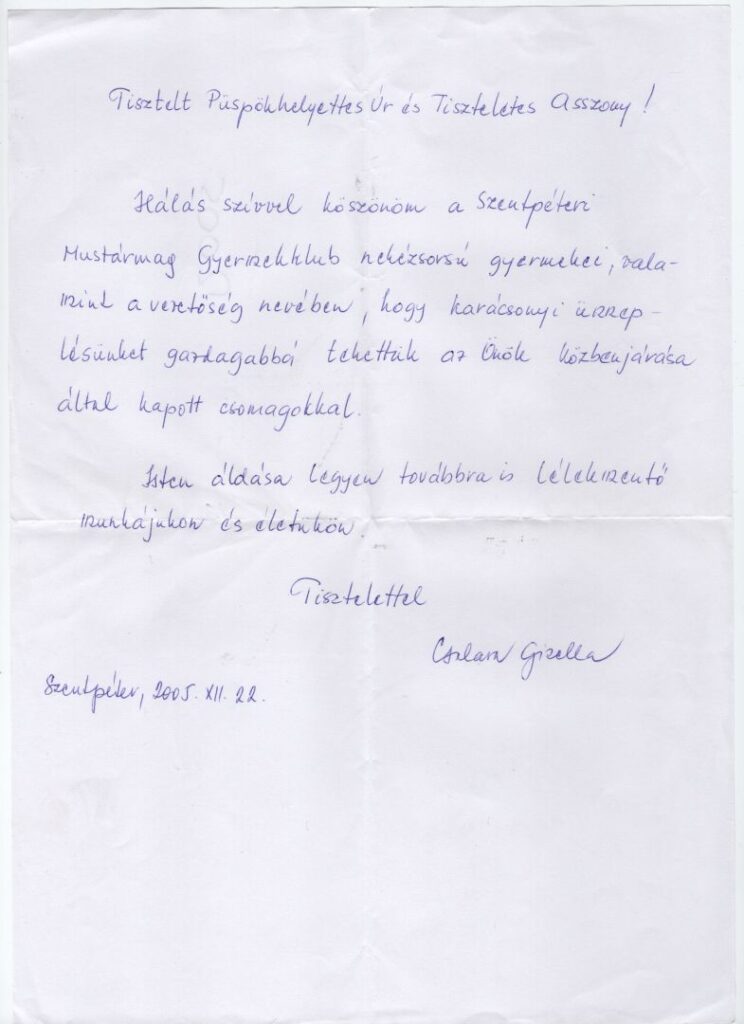 Tisztelt Püspökhelyettes Úr és Tiszteletes Asszony!
Hálás szívvel köszönöm a Szentpéteri
Mustármag Gyermekklub nehézsorsú gyermekei, vala-
mint a vezetőség nevében, hogy karácsonyi ünnep-
lésünket gazdagabbá tehettük az Önök közbenjárása
által kapott csomagokkal.
Isten áldása legyen továbbra is lélekmentő
munkájukon és életükön.
Tisztelettel
Gizella
Szentpéter, 2005. XII. 22.